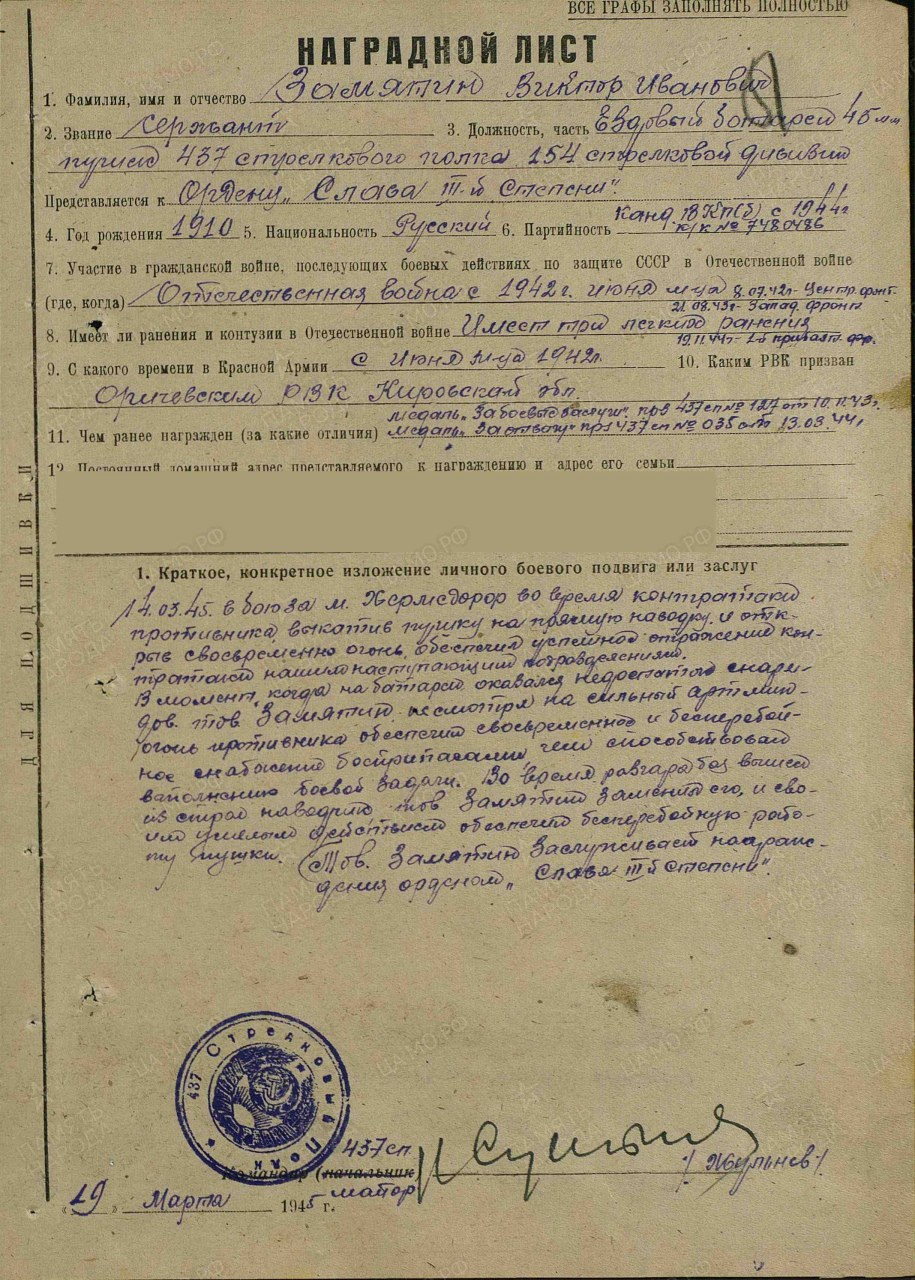 ВСЕ ГРАФЫ ЗАПОЛНЯТЬ ПОЛНОСТЬЮ
НАГРАДНОЙ ЛИСТ
1. Фамилия, имя и отчество Замятин Виктор Иванович
2. Звание сержант 3. Должность, часть Ездовый батареи 45 мм
пушек 437 стрелкового полка 154 стрелковой дивизии
Представляется к Ордену „Слава III-й степени".
4. Год рождения 1910 5. Национальность Русский 6. Партийность Канд. ВКП(б) с 1944г
к/к № 7480486
7. Участие в гражданской войне, последующих боевых действиях по защите СССР в Отечественной войне
(где, когда) Отечественная война с 1942г. июня м-ца 8.07.42г- Центр. фронт.
21.08.43г- Запад. фронт
8. Имеет ли ранения и контузии в Отечественной войне Имеет три легких ранения
19.11.44г- 1-й прибалт. фр.
9. С какого времени в Красной Армии с июня м-ца 1942г. 10. Каким РВК призван
Оричевским РВК Кировской обл.
медаль „За боевые заслуги" пр. 437 сп № 127 от 10.11.43г.
11. Чем ранее награжден (за какие отличия) медаль „За отвагу" пр. 437 сп № 035 от 13.03.44г.
12 Постоянный домашний адрес представляемого к награждению и адрес его семьи
1. Краткое, конкретное изложение личного боевого подвига или заслуг
14.03.45. в бою за м. во время контратаки
противника выкатив пушку на прямую наводку, и отк-
рыв своевременно огонь, обеспечил успешное отражение кон-
тратаки нашим наступающим подразделениям.
В момент, когда на батарее оказался недостаток снаря-
дов. тов. Замятин несмотря на сильный
огонь противника обеспечил своевременное и бесперебой-
ное снабжение боеприпасами, чем способствовал
выполнению боевой задачи. Во время разгара боя вышел
из строя наводчик, тов Замятин заменил его, и сво-
им умелым действием обеспечил бесперебойную рабо-
ту пушки. Тов. Замятин заслуживает награж-
дения орденом „Слава III-й степени".
437 Стрелковый Полк
437 сп
Командир (начальник
майор
„19" Марта 1945 г.
ДЛЯ ПОДШИВКИ
ЦАМО.РФ